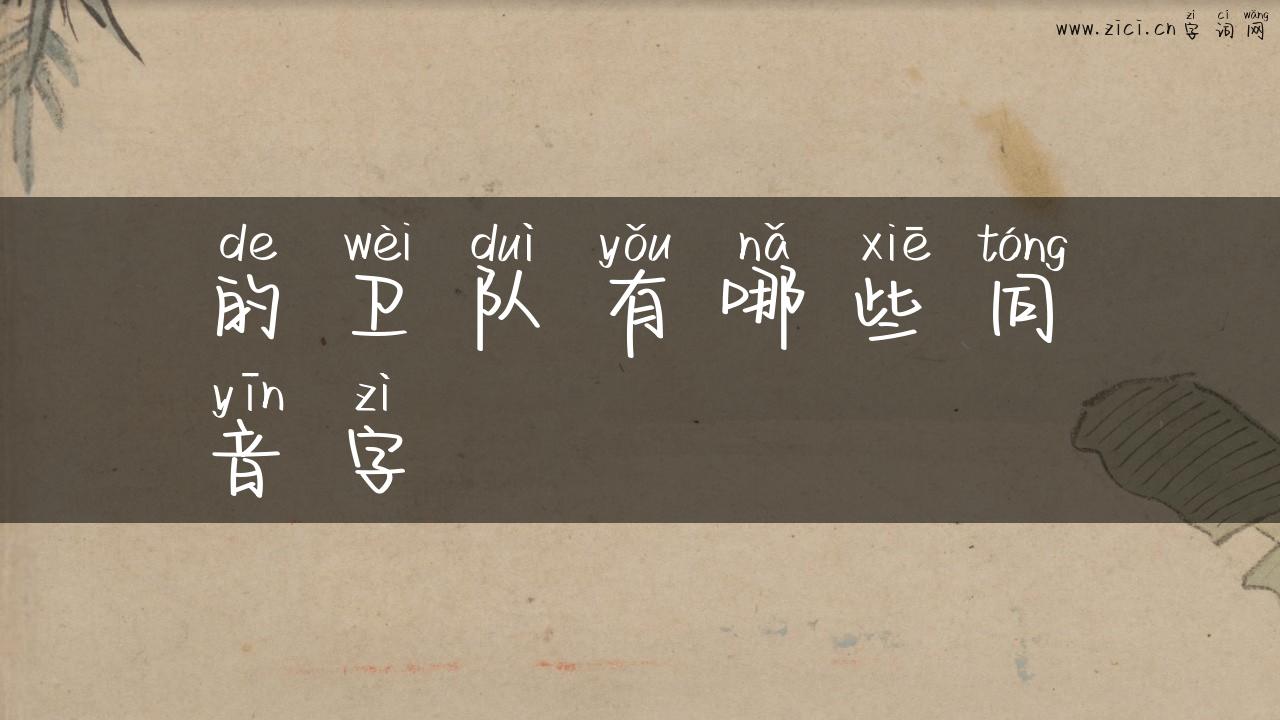 zì cí wǎng
www.zici.cn 字 词 网
de wèi duì yǒu nǎ xiē tóng
的 卫 队 有 哪 些 同
yīn zì
音 字